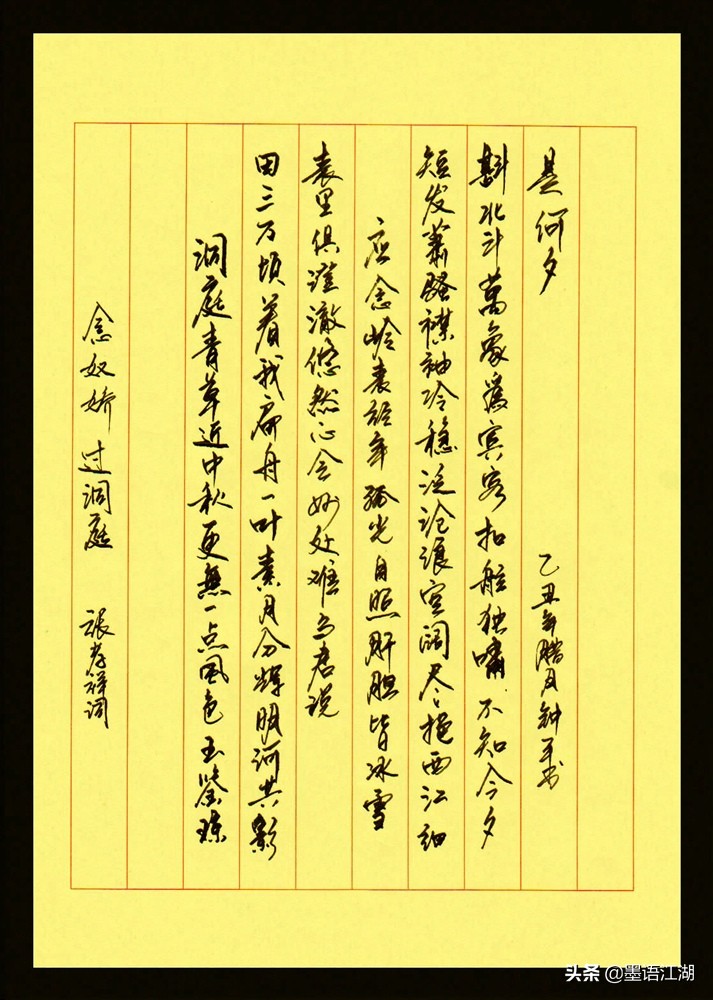 念奴娇 过洞庭 張孝祥词
洞庭青草近中秋更無一点风色玉鑒琼
田三万顷着我扁舟一叶素月分辉明河共影
表里俱澄澈悠然心会妙处难与君说
应念岭表经年孤光自照肝胆皆冰雪
短发萧骚襟袖冷稳泛沧浪空阔尽挹西江细
斟北斗萬象爲宾客扣舷独啸不知今夕
是何夕
乙丑年腊月钟书
头条 @墨语江湖